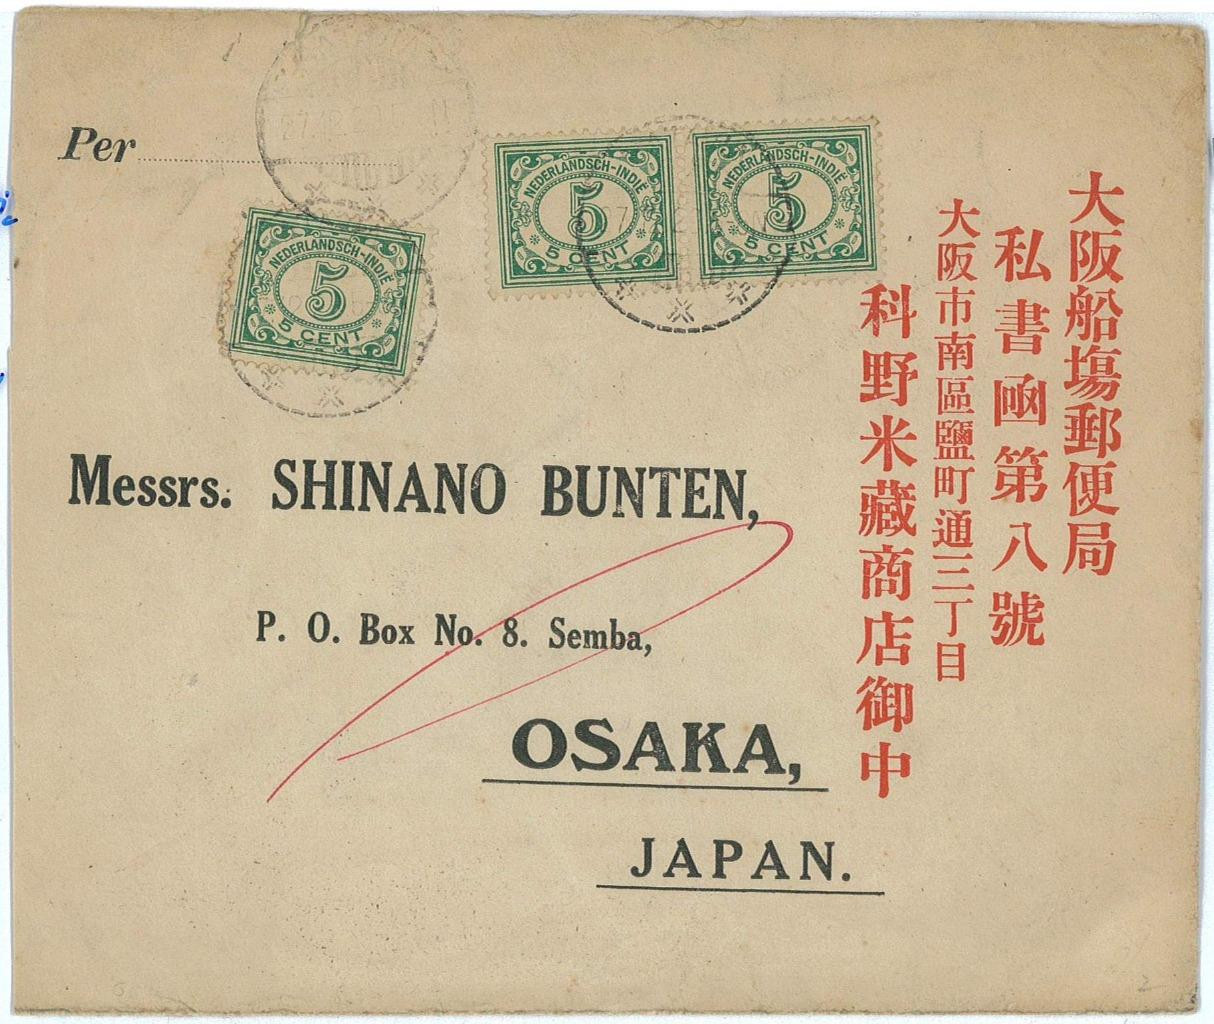 Per
NEDERLANDSCH-INDIË
5
5 CENT
NEDERLANDSCH-INDIË
5
5 CENT
NEDERLANDSCH-INDIË
5
5 CENT
Messrs. SHINANO BUNTEN,
P. O. Box No. 8. Semba,
OSAKA,
JAPAN.
大阪船塲郵便局
私書凾第八號
大阪市南區鹽町通三丁目
科野米藏商店御中